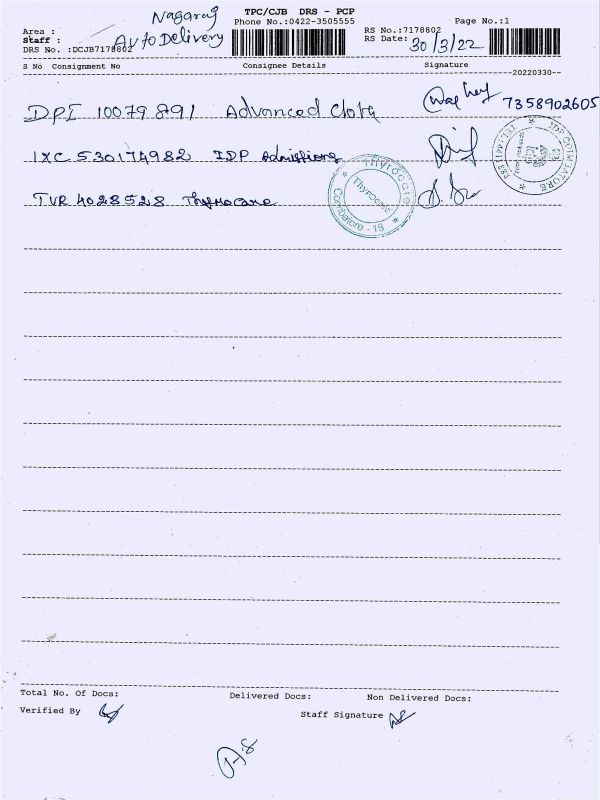 Nagaraj
TPC/CJB DRS - PCP
Page No.:1
Area :
Phone No.:0422-3505555
RS No.:7178802
Staff :
Auto Delivery
RS Date: 30/3/22
DRS No. :DCJB7178802
S No Consignment No Consignee Details Signature
20220330
DPI 10079891 Advanced 7358902605
IXC 530174982 IDP Admissions
TVR 4028528 Thyrocare
Thyrocare
Thyrocare
Coimbatore - 18
IDP COIMBATORE
Total No. Of Docs: Delivered Docs: Non Delivered Docs:
Verified By
Staff Signature